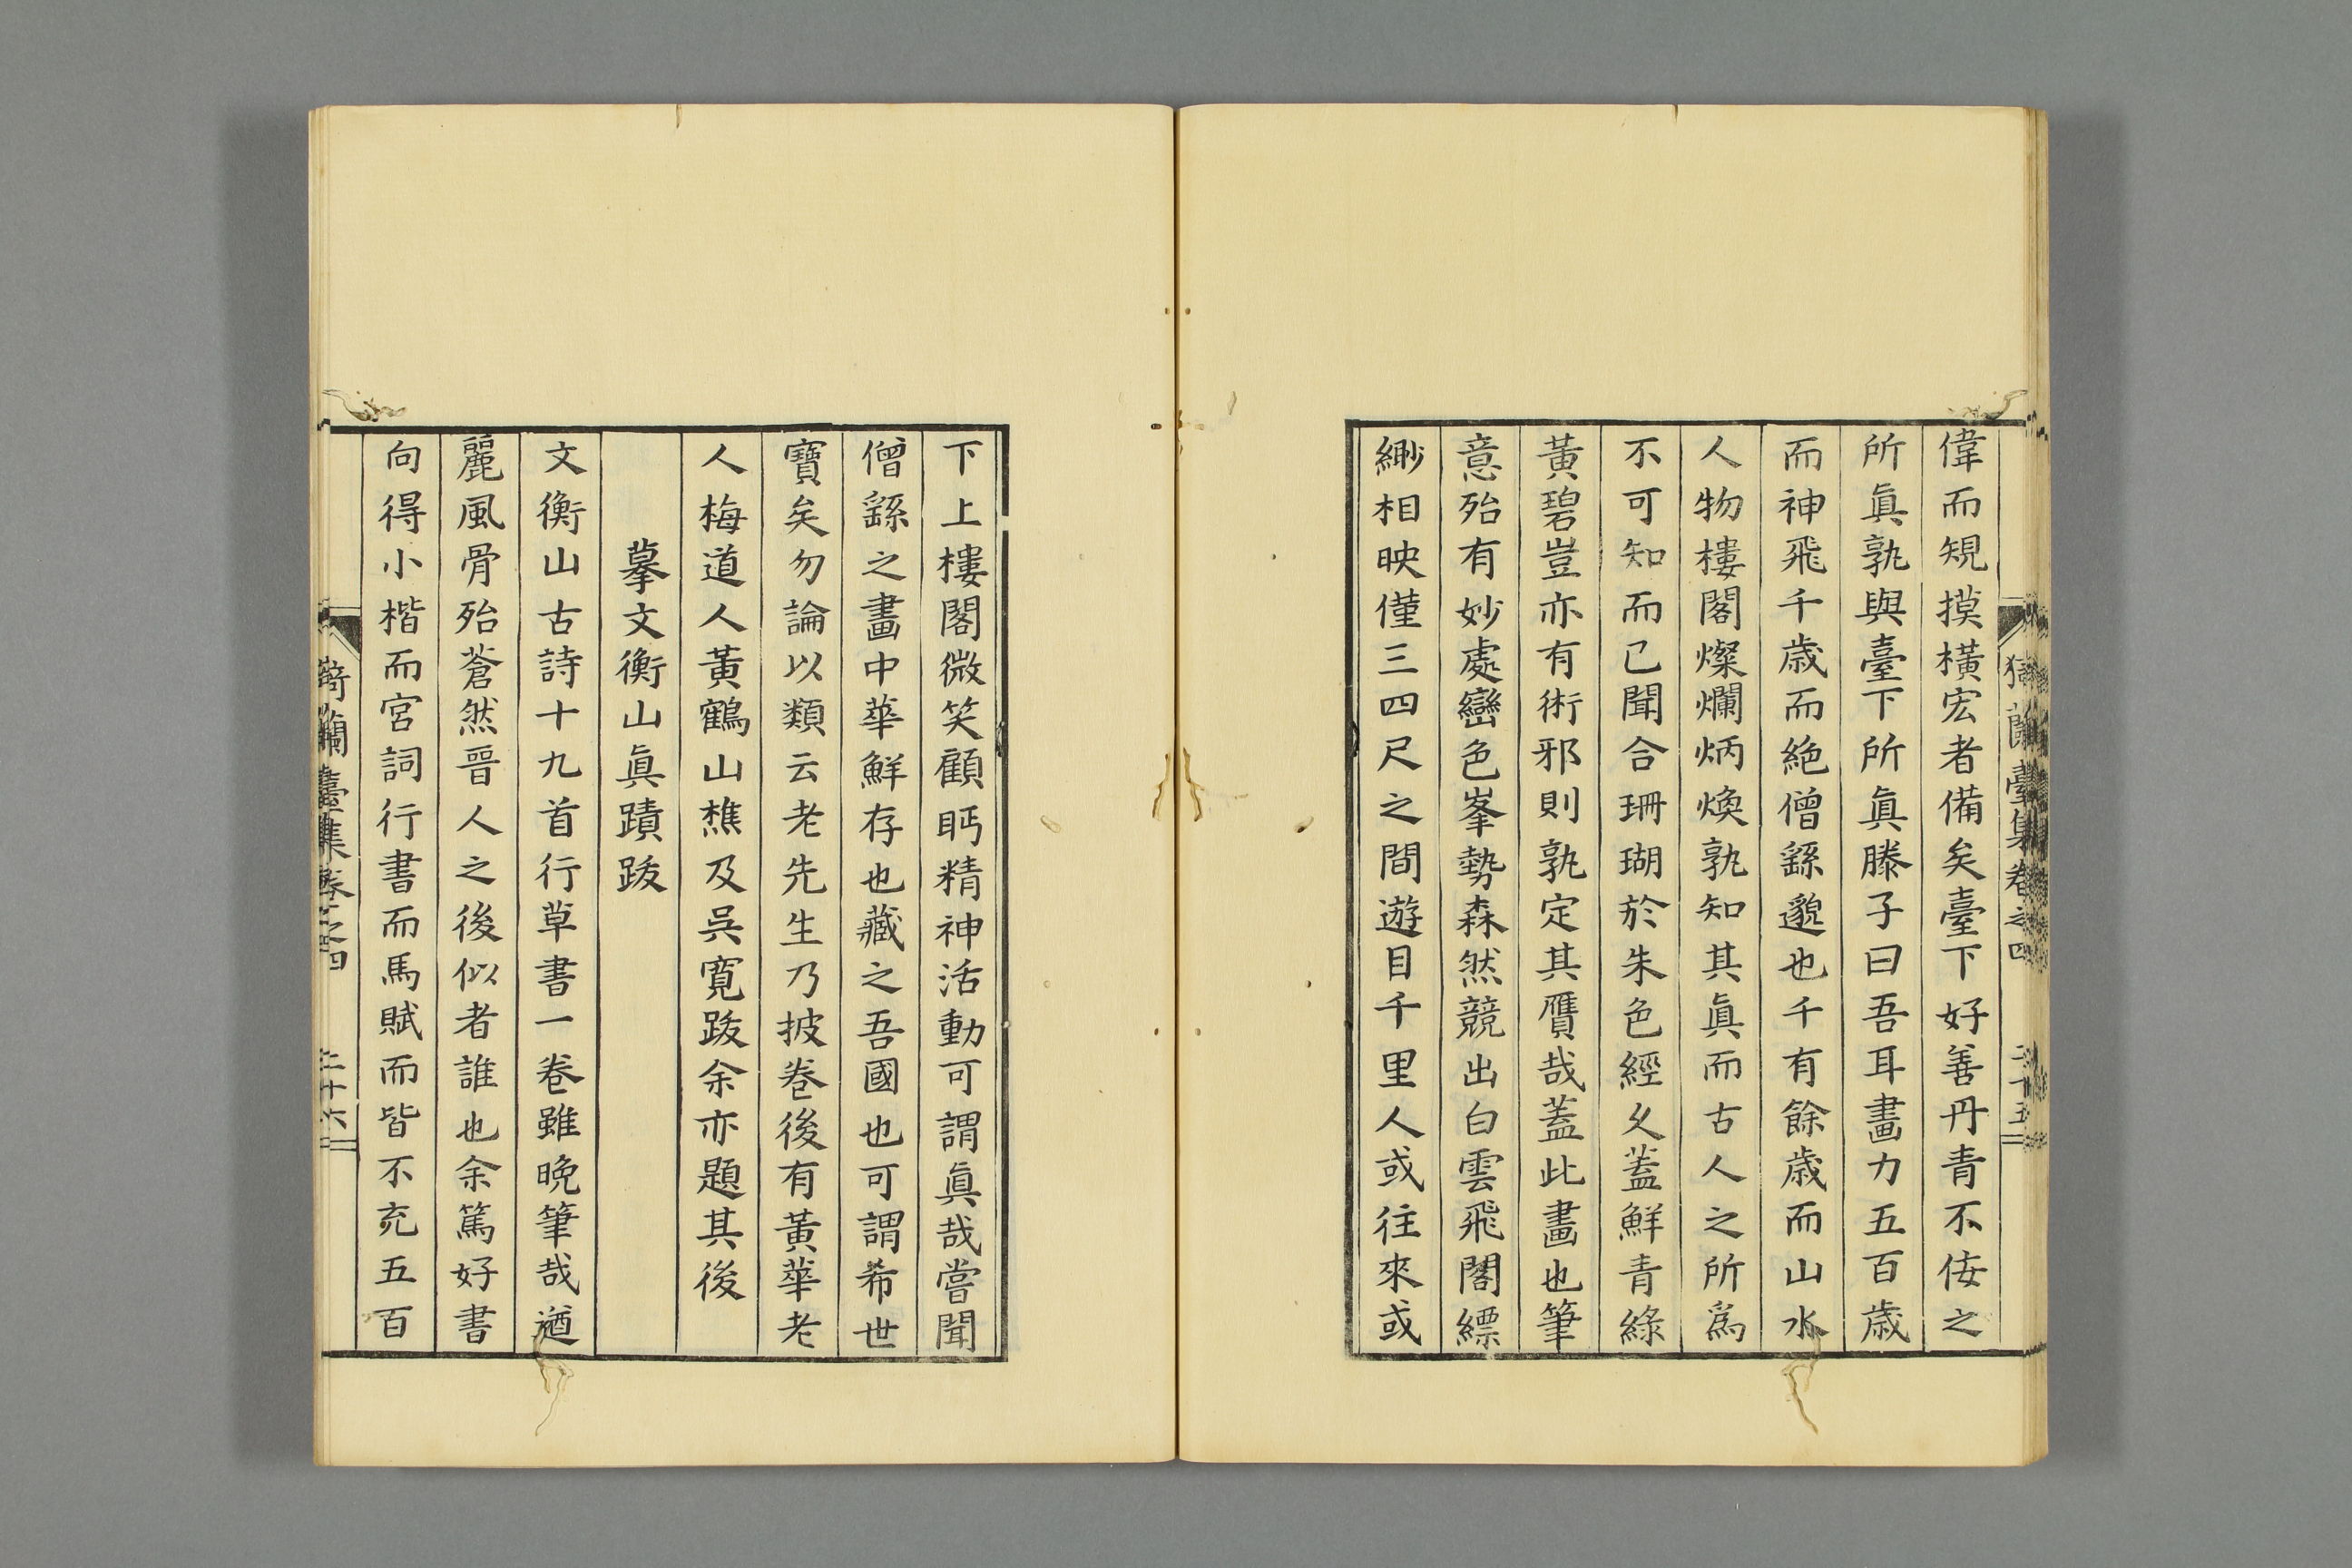 偉而規摸橫宏者備矣臺下好善丹青不侫之
所眞孰與臺下所眞滕子曰吾耳畫力五百歳
而神飛千歳而絶僧繇邈也千有餘歳而山水
人物樓閣燦爛炳煥孰知其眞而古人之所爲
不可知而已聞合珊瑚於朱色經久蓋鮮青綠
黃碧豈亦有術邪則孰定其贋哉蓋此畫也筆
意殆有妙處巒色峯勢森然競出白雲飛閣縹
緲相映僅三四尺之間遊目千里人或往來或
下上樓閣微笑顧眄精神活動可謂眞哉嘗聞
僧繇之畫中華鮮存也藏之吾國也可謂希世
寶矣勿論以類云老先生乃披卷後有黃華老
人梅道人黃鶴山樵及吳寬跋余亦題其後
摹文衡山眞蹟跋
文衡山古詩十九首行草書一卷雖晩筆哉遒
麗風骨殆蒼然晋人之後似者誰也余篤好書
向得小楷而宮詞行書而馬賦而皆不充五百
猗蘭臺集卷之四 二十六